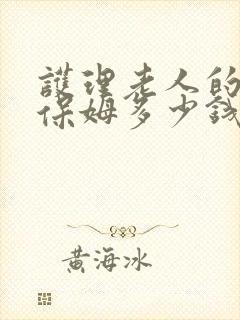 護理老人的
保姆多少錢
黃海冰